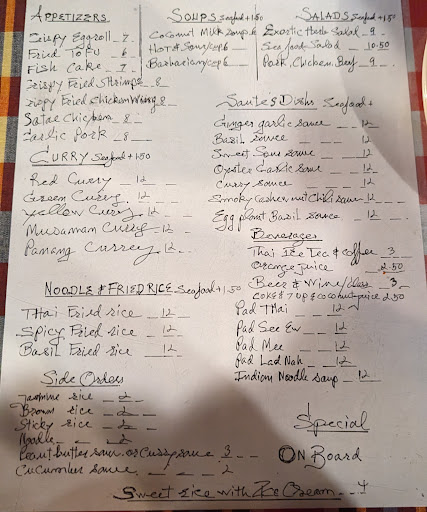 APPETIZERS
Crispy Eggroll - 7 -
Fried TOFU - 6 -
Fish Cake - 7
Crispy Fried Shrimp 8
Crispy Fried Chicken Wing 8
Satae Chicken 8
Garlic Pork 8
SOUPS Seafood +1.50
Coconut Milk Soup 6
Hot & Sour/cup 6
SALADS Seafood +1.50
Exortic Herb Salad 9
Sea food Salad 10.50
Pork, Chicken, Beef 9
CURRY Seafood +1.50
Red Curry 12
Green Curry 12
Yellow Curry 12
Mudamam Curry 12
Panang Currey 12
Sautes Dishs Seafood +
Ginger garlic sauce 12
Basil sauce 12
Sweet Sour sauce 12
Oyster Garlic sauce 12
Curry sauce 12
Smoky Cashew nut Chili sauce 12
Egg plant Basil sauce 12
Beverages
Thai Ice Tea & Coffee 3
Orange juice 2.50
Beer & Wine/Glass 3
COKE & 7UP & coconut juice 2.50
NOODLE & FRIED RICE Seafood +1.50
THai Fried rice 12
Spicy Fried rice 12
Basil Fried rice 12
Pad THai 12
Pad See Ew 12
Pad Mee 12
Pad Lad Nah 12
Indian Noodle soup 12
Side Orders
Jasmine rice 2
Brown rice 2
Sticky rice 2
Noodle 2
Peanut butter sauce or Curry sauce 3
Cucumber sauce 2
Special
ON Board
Sweet rice with Ice Cream